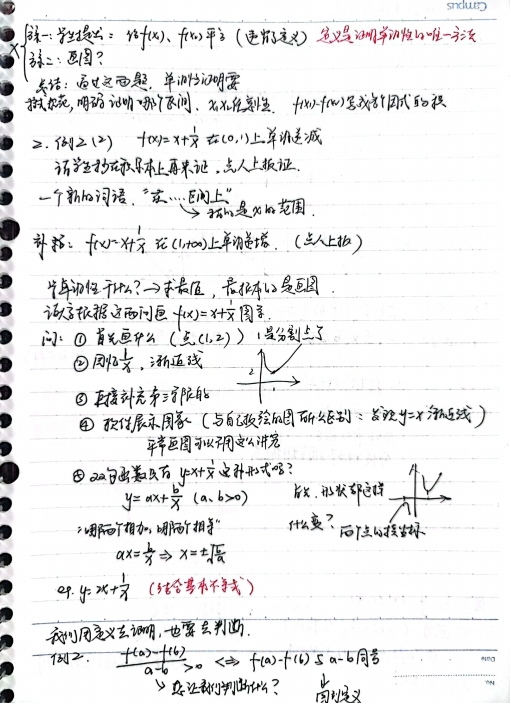 Campus
法一:学生提出:作f(x₁)、f(x₂)平方 (更加定义) 定义是证明单调性的唯一方法
法二:画图?
总结:通过这两题,单调性证明要
明确证明哪个区间、x₁x₂任意性 f(x₁)-f(x₂)写成若干因式的积
2. 例2(2) f(x)=x+1/x 在(0,1)上单调递减
请学生们在本上再来证,点人上板证.
一个新的词语,"在……区间上"
→ 指的是x的范围.
补录: f(x)=x+1/x 在(1,+∞)上单调递增. (点人上板)
学单调性干什么?→求最值,最根本的是画图
请你根据这两问画 f(x)=x+1/x 图象.
问:① 首先画什么 (点(1,2)) 1是分割点了
② 因为1/x,渐近线
2
1
③ 直接补充第三象限的
④ 软件展示图象 (与自己所绘的图有什么区别:发现y=x渐近线)
平常画图可以不用这么讲究
⑤ 双勾函数只有 y=x+1/x 这种形式吗?
y=ax+b/x (a、b>0) 形状都这样
"哪两个相加,哪两个相等" 什么变?两个点的横坐标
ax=b/x ⇒ x=±√(b/a)
eg. y=2x+1/x (结合基本不等式)
我们用定义去证明,也要去判断.
例2. (f(a)-f(b))/(a-b) >0 ⇔ f(a)-f(b)与a-b同号
→ 忘记我们判断什么? ↓
回到定义
Date
No.